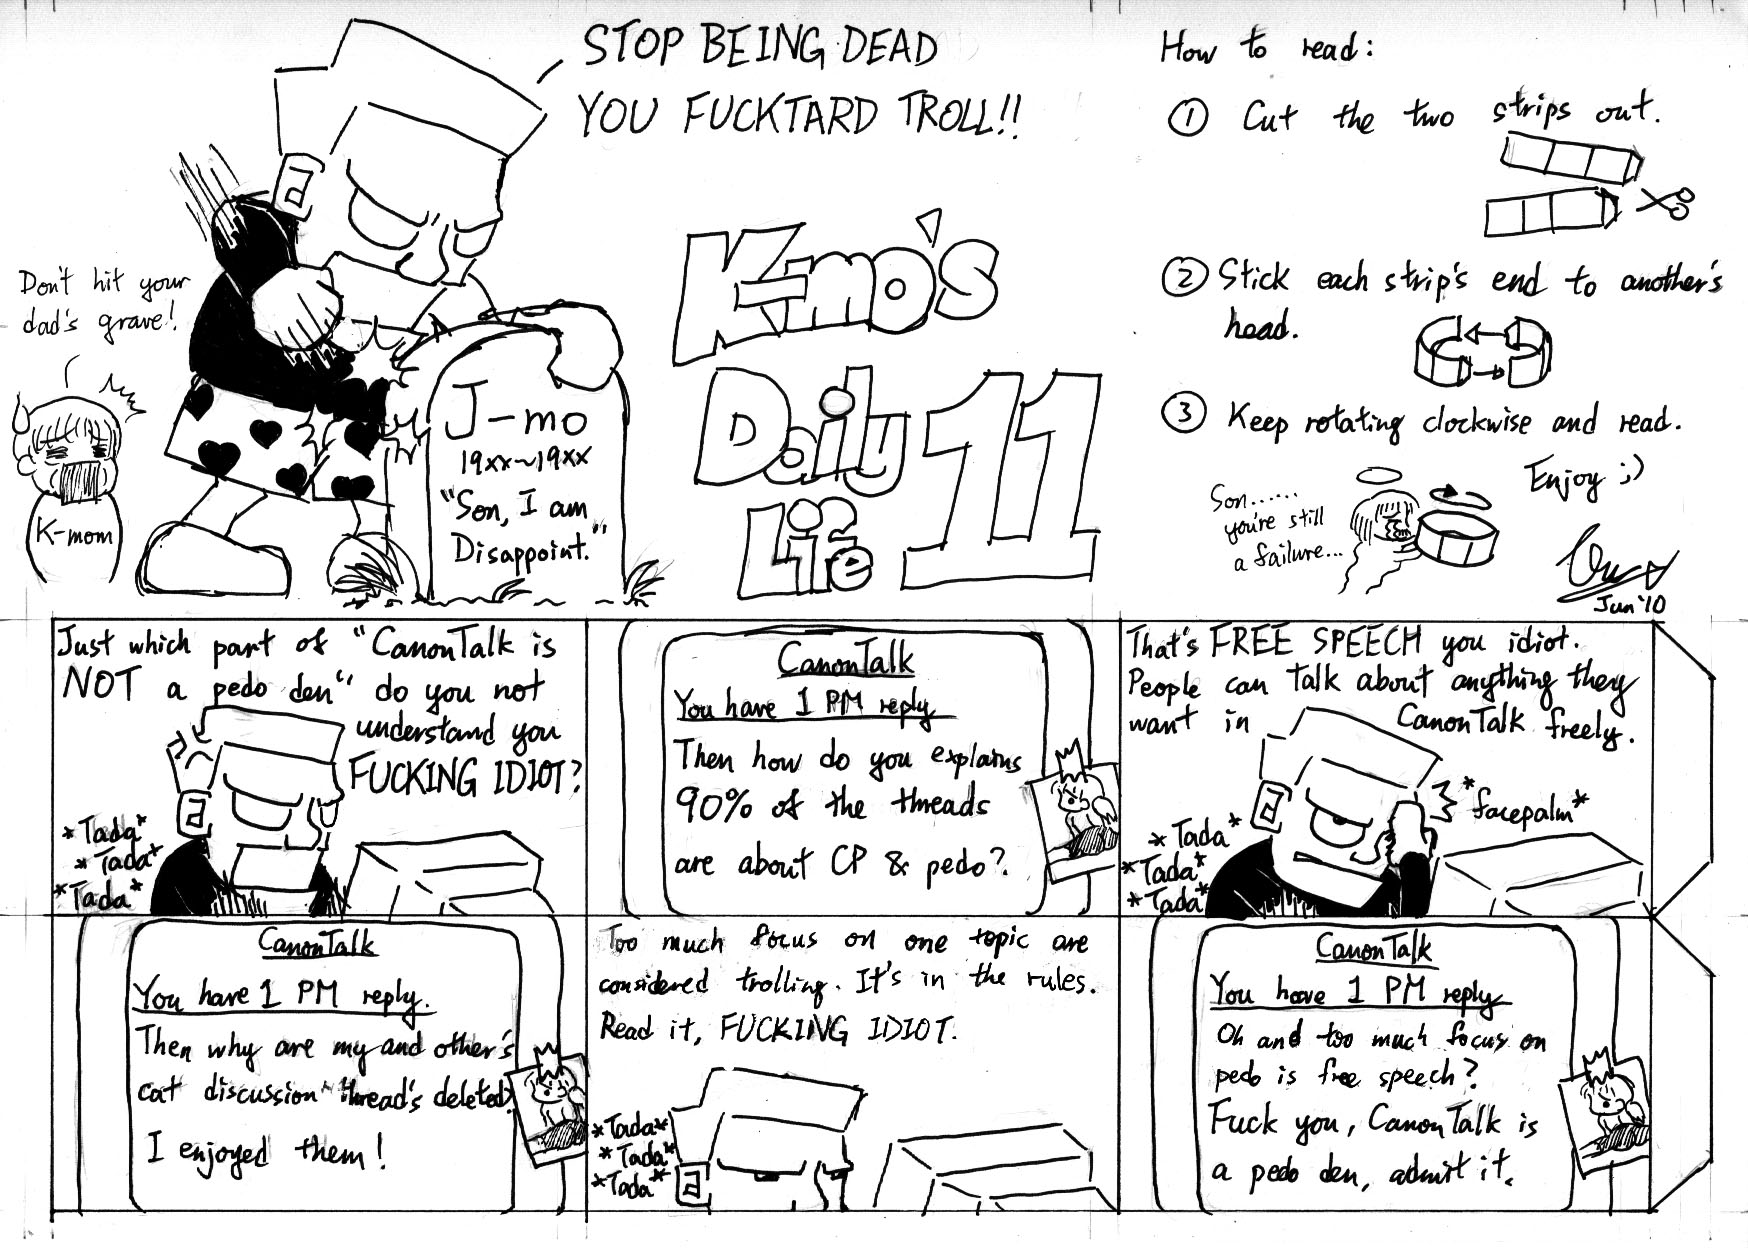 STOP BEING DEAD
YOU FUCKTARD TROLL!!
Don't hit your
dad's grave!
K-mom
J-mo
19xx~19xx
"Son, I am
Disappoint."
K-mo's
Daily
Life
11
How to read:
① Cut the two strips out.
② Stick each strip's end to another's
head.
③ Keep rotating clockwise and read.
Enjoy ;)
Son......
you're still
a failure...
Jun'10
Just which part of "CanonTalk is
NOT a pedo den" do you not
understand you
FUCKING IDIOT?
*Tada*
*Tada*
*Tada*
a
CanonTalk
You have 1 PM reply
Then how do you explains
90% of the threads
are about CP & pedo?
That's FREE SPEECH you idiot.
People can talk about anything they
want in CanonTalk freely.
*facepalm*
*Tada*
*Tada*
*Tada*
a
CanonTalk
You have 1 PM reply.
Then why are my and other's
cat discussion thread's deleted?
I enjoyed them!
Too much focus on one topic are
considered trolling. It's in the rules.
Read it, FUCKING IDIOT.
*Tada*
*Tada*
*Tada*
a
CanonTalk
You have 1 PM reply
Oh and too much focus on
pedo is free speech?
Fuck you, CanonTalk is
a pedo den, admit it.